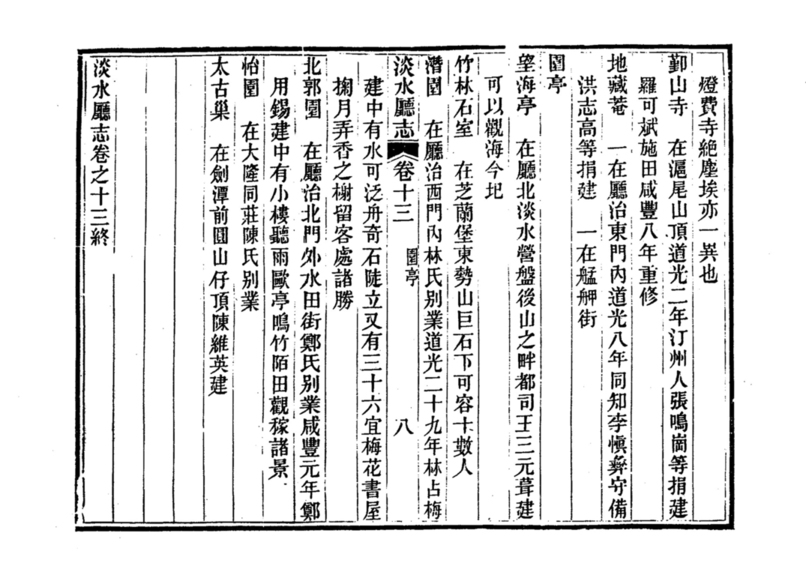 燈費寺絶塵埃亦一異也
鄞山寺　在滬尾山頂道光二年汀州人張鳴崗等捐建
羅可斌施田咸豐八年重修
地藏菴　一在廳治東門內道光八年同知李愼彝守備
洪志高等捐建　一在艋舺街
園亭
望海亭　在廳北淡水營盤後山之畔都司王三元葺建
可以觀海今圯
竹林石室　在芝蘭堡東勢山巨石下可容十數人
潛園　在廳治西門內林氏別業道光二十九年林占梅
淡水廳志　卷十三　園亭　八
建中有水可泛舟奇石陡立又有三十六宜梅花書屋
掬月弄香之榭留客處諸勝
北郭園　在廳治北門外水田街鄭氏別業咸豐元年鄭
用錫建中有小樓聽雨歐亭鳴竹陌田觀稼諸景
怡園　在大隆同莊陳氏別業
太古巢　在劍潭前圓山仔頂陳維英建
淡水廳志卷之十三終